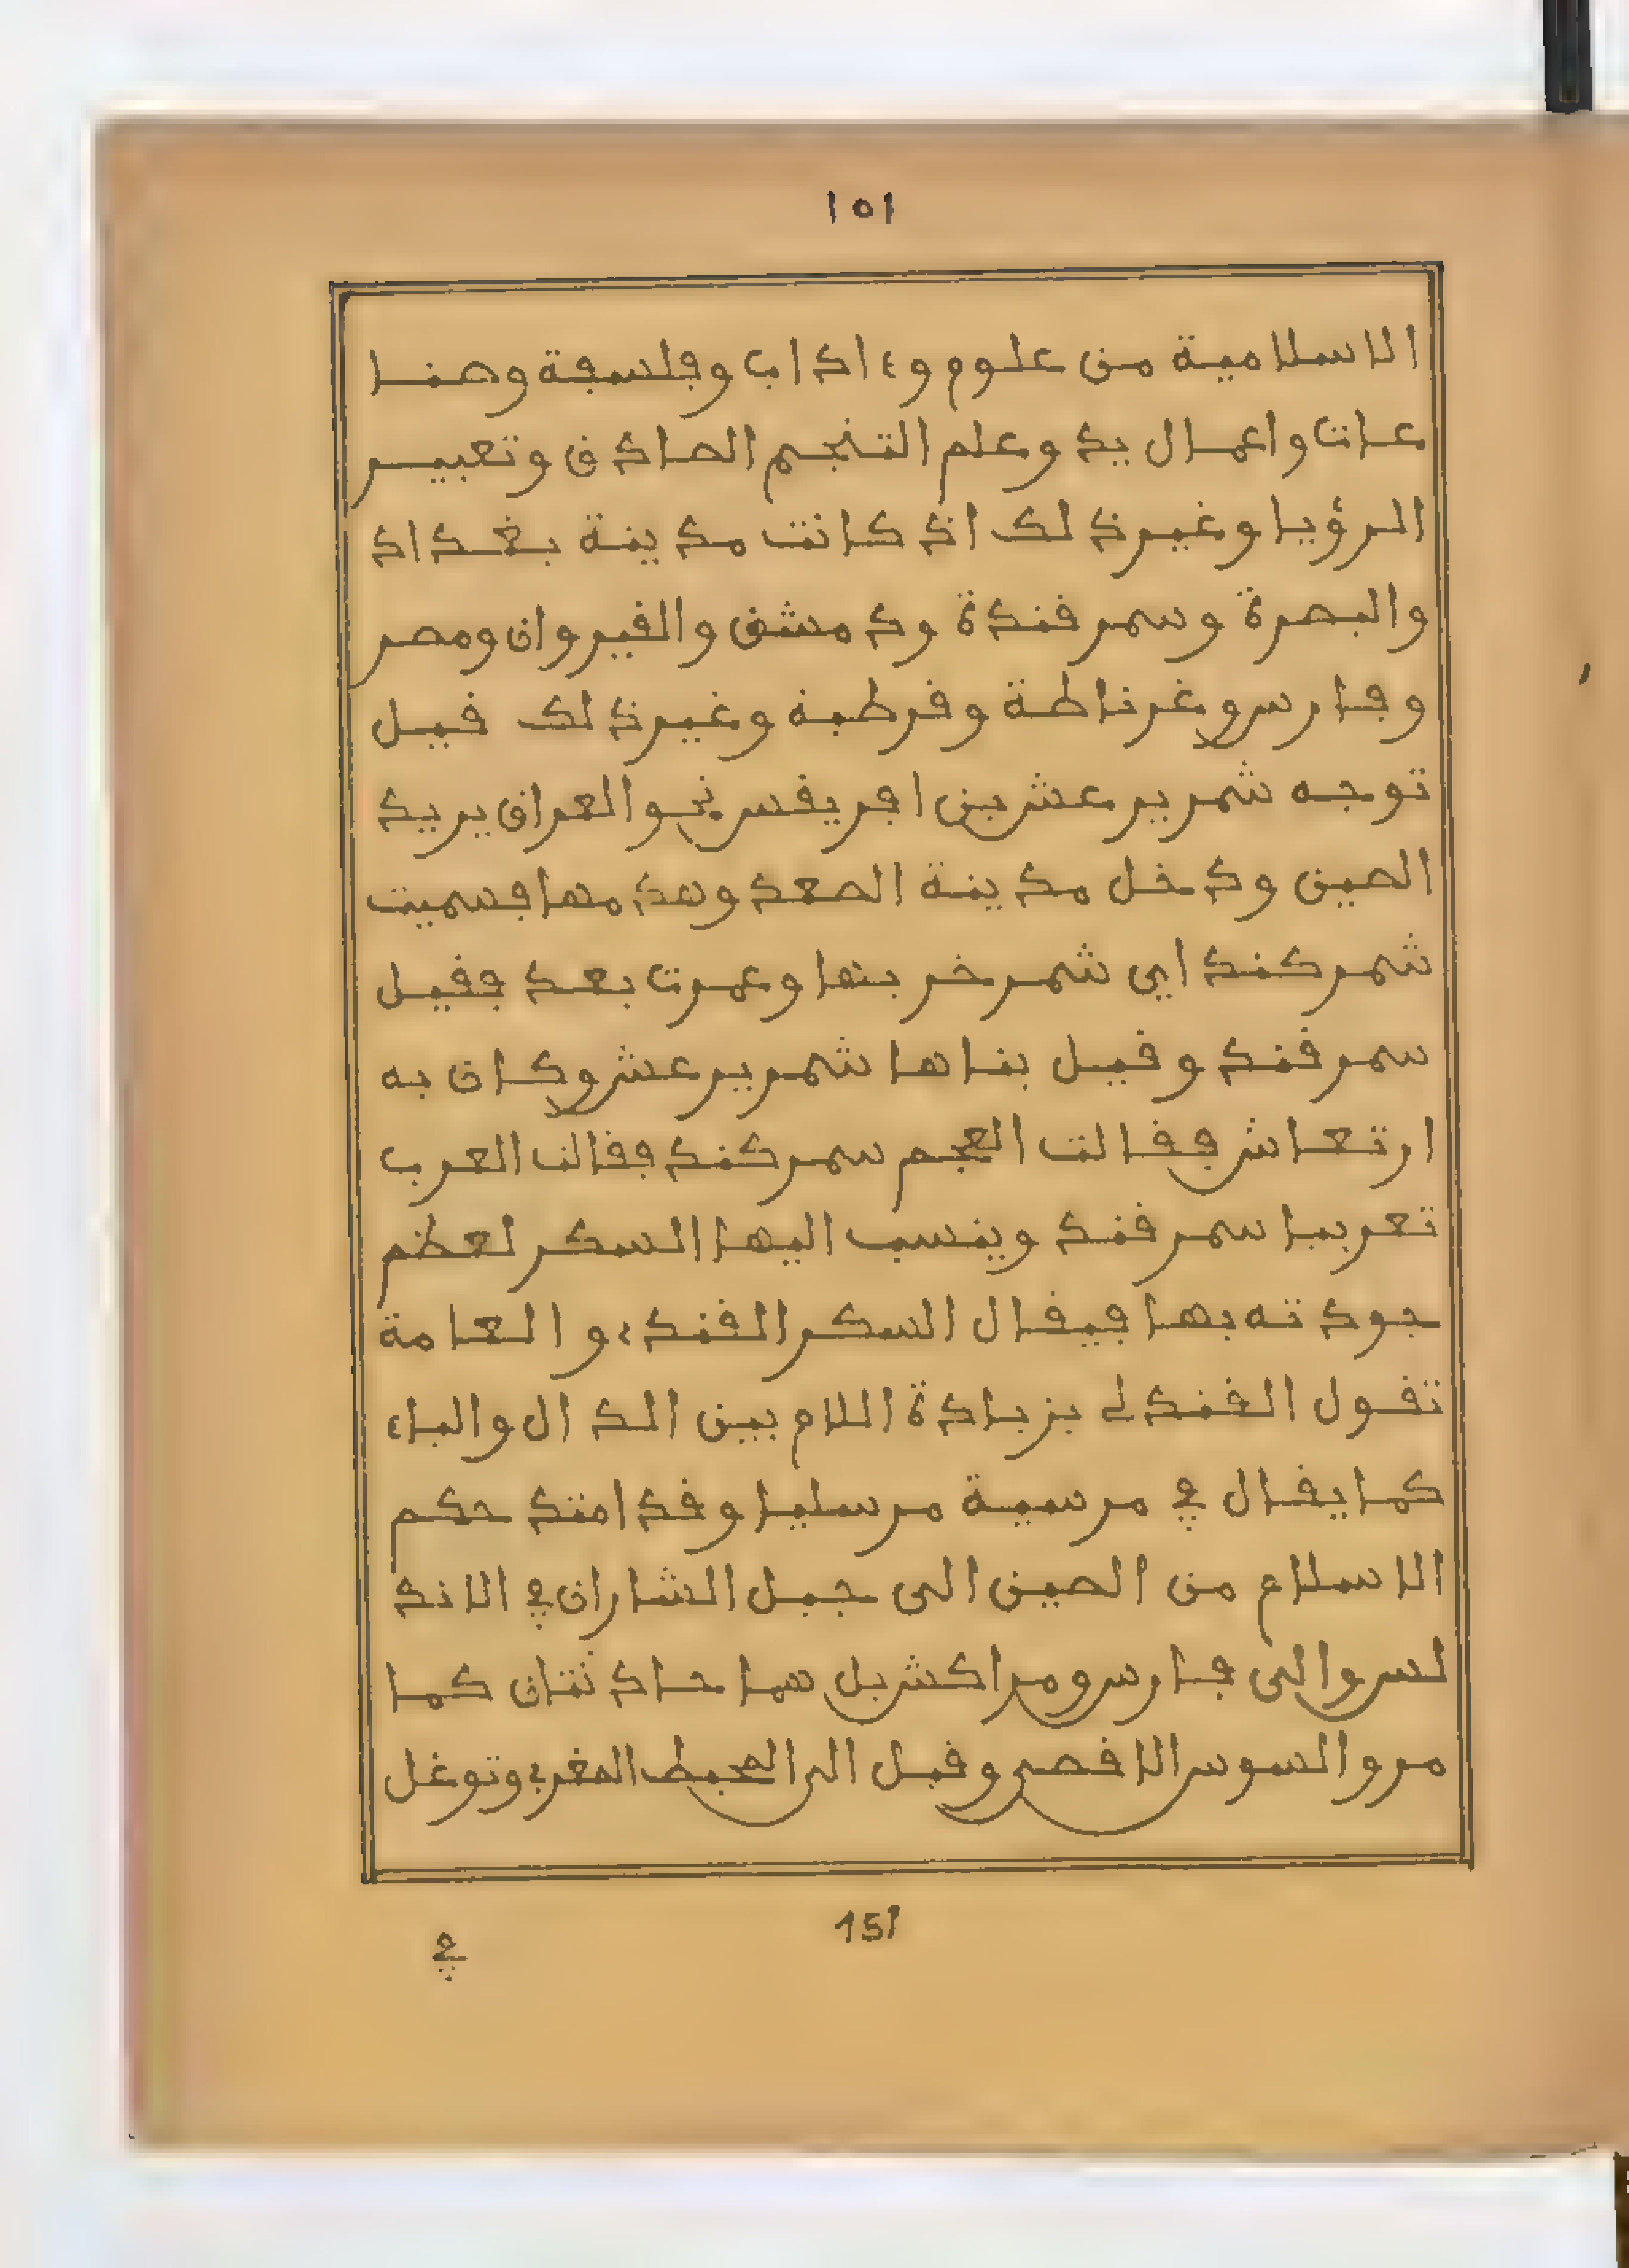 ١٥١
الاسلامية من علوم وءاداب وفلسفة وصنا
عات واعمال يد وعلم التنجم الصادق وتعبير
الرؤيا وغير ذلك اذ كانت مدينة بغداد
والبصرة وسمرقندة ودمشق والقيروان ومصر
وفارس وغرناطة وقرطبة وغير ذلك قيل
توجه شمر يرعش بن افريقس نحو العراق يريد
الصين ودخل مدينة الصعد وهدمها فسميت
شمركند اي شمر خربها وعمرت بعد فقيل
سمرقند وقيل بناها شمر يرعش وكان به
ارتعاش فقالت العجم سمركند فقالت العرب
تعريبا سمرقند وينسب اليها السكر لعظم
جودته بها فيقال السكر القندي والعامة
تقول القندلي بزيادة اللام بين الدال والياء
كما يقال في مرسية مرسليا وقد امتد حكم
الاسلام من الصين الى جبل الشارات في الاند
لس والى فارس ومراكش بل هما حادثتان كما
مر والسوس الاقصى وقيل الى المحيط المغربي وتوغل
151
في